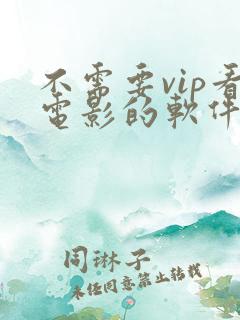 不需要vip看
電影的軟件
同琳子
未任同意禁止转载